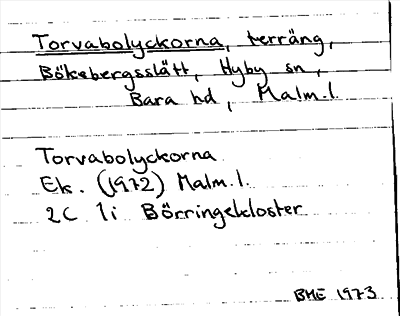 Torvabolyckorna, terräng,
Bökebergsslätt, Hyby sn,
Bara hd, Malm.l.
Torvabolyckorna
Ek. (1972) Malm.l.
2C 1i Börringekloster
BME 1973